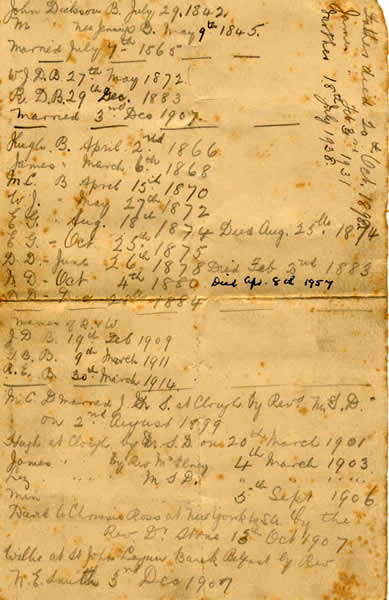 John Dickson B. July 29. 1842.
M " nee Jenny B. May 9th 1845.
Married July 7th 1865
W J D. B 27th May 1872
R. D. B. 29th Dec. 1883
Married 3rd Dec 1907
Hugh B. April 2nd 1866
James " March 6th 1868
M C. B April 15th 1870
W. J. " May 27th 1872
E G. " Aug. 18th 1874 Died Aug. 25th 1874
E G. - Oct 25th 1875
D D. - June 26th 1878 Died Feb 2nd 1883
N D - Oct 4th 1880 Died Apr. 8th 1957
1884
Names of
J D B. 19th Feb 1909
B. B. 9th March 1911
R. E. B. 30th March 1914
M C D Married J. S. at Clough by Revd S. D.
on 2nd August 1899
Hugh at Clough by S. D on 20th March 1901
James " by Rev 4th March 1903
M S D. " " " "
Min 5th Sept 1906
Ross at New York by the
Rev. D. Stone 13th Oct 1907
Willie at St John Belfast by Rev
W. E. Smith 3rd Dec 1907
Father died 20th Oct. 189
James " Feb 3 1931
Mother 18th July 1938